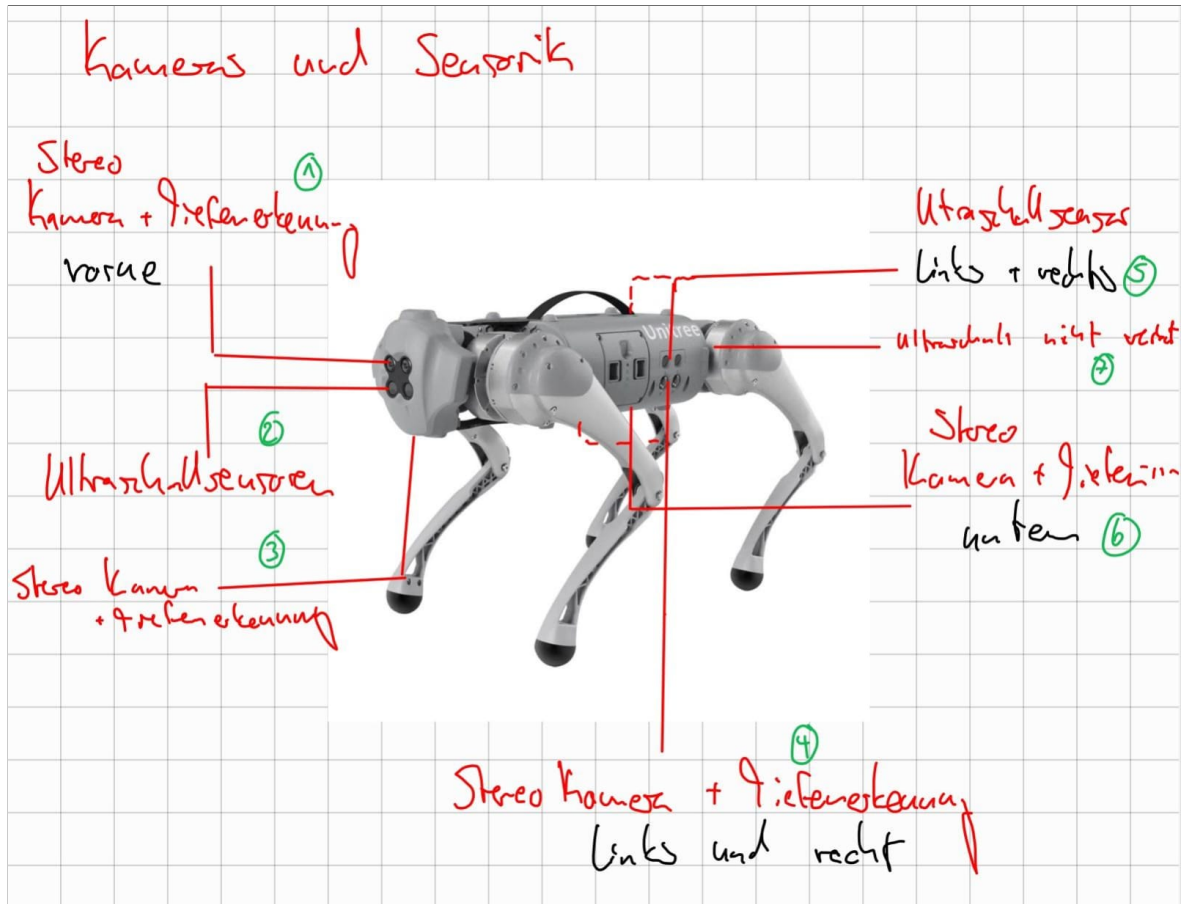 Kameras und Sensorik
Stereo
①
Kamera + Tiefenerkennung
vorne
②
Ultraschallsensoren
③
Stereo Kamera
+ Tiefenerkennung
Unitree
Utraschallsensor
links + rechts ⑤
Ultraschall nicht
⑦
Stereo
Kamera + Tiefen
unten ⑥
④
Stereo Kamera + Tiefenerkennung
links und recht